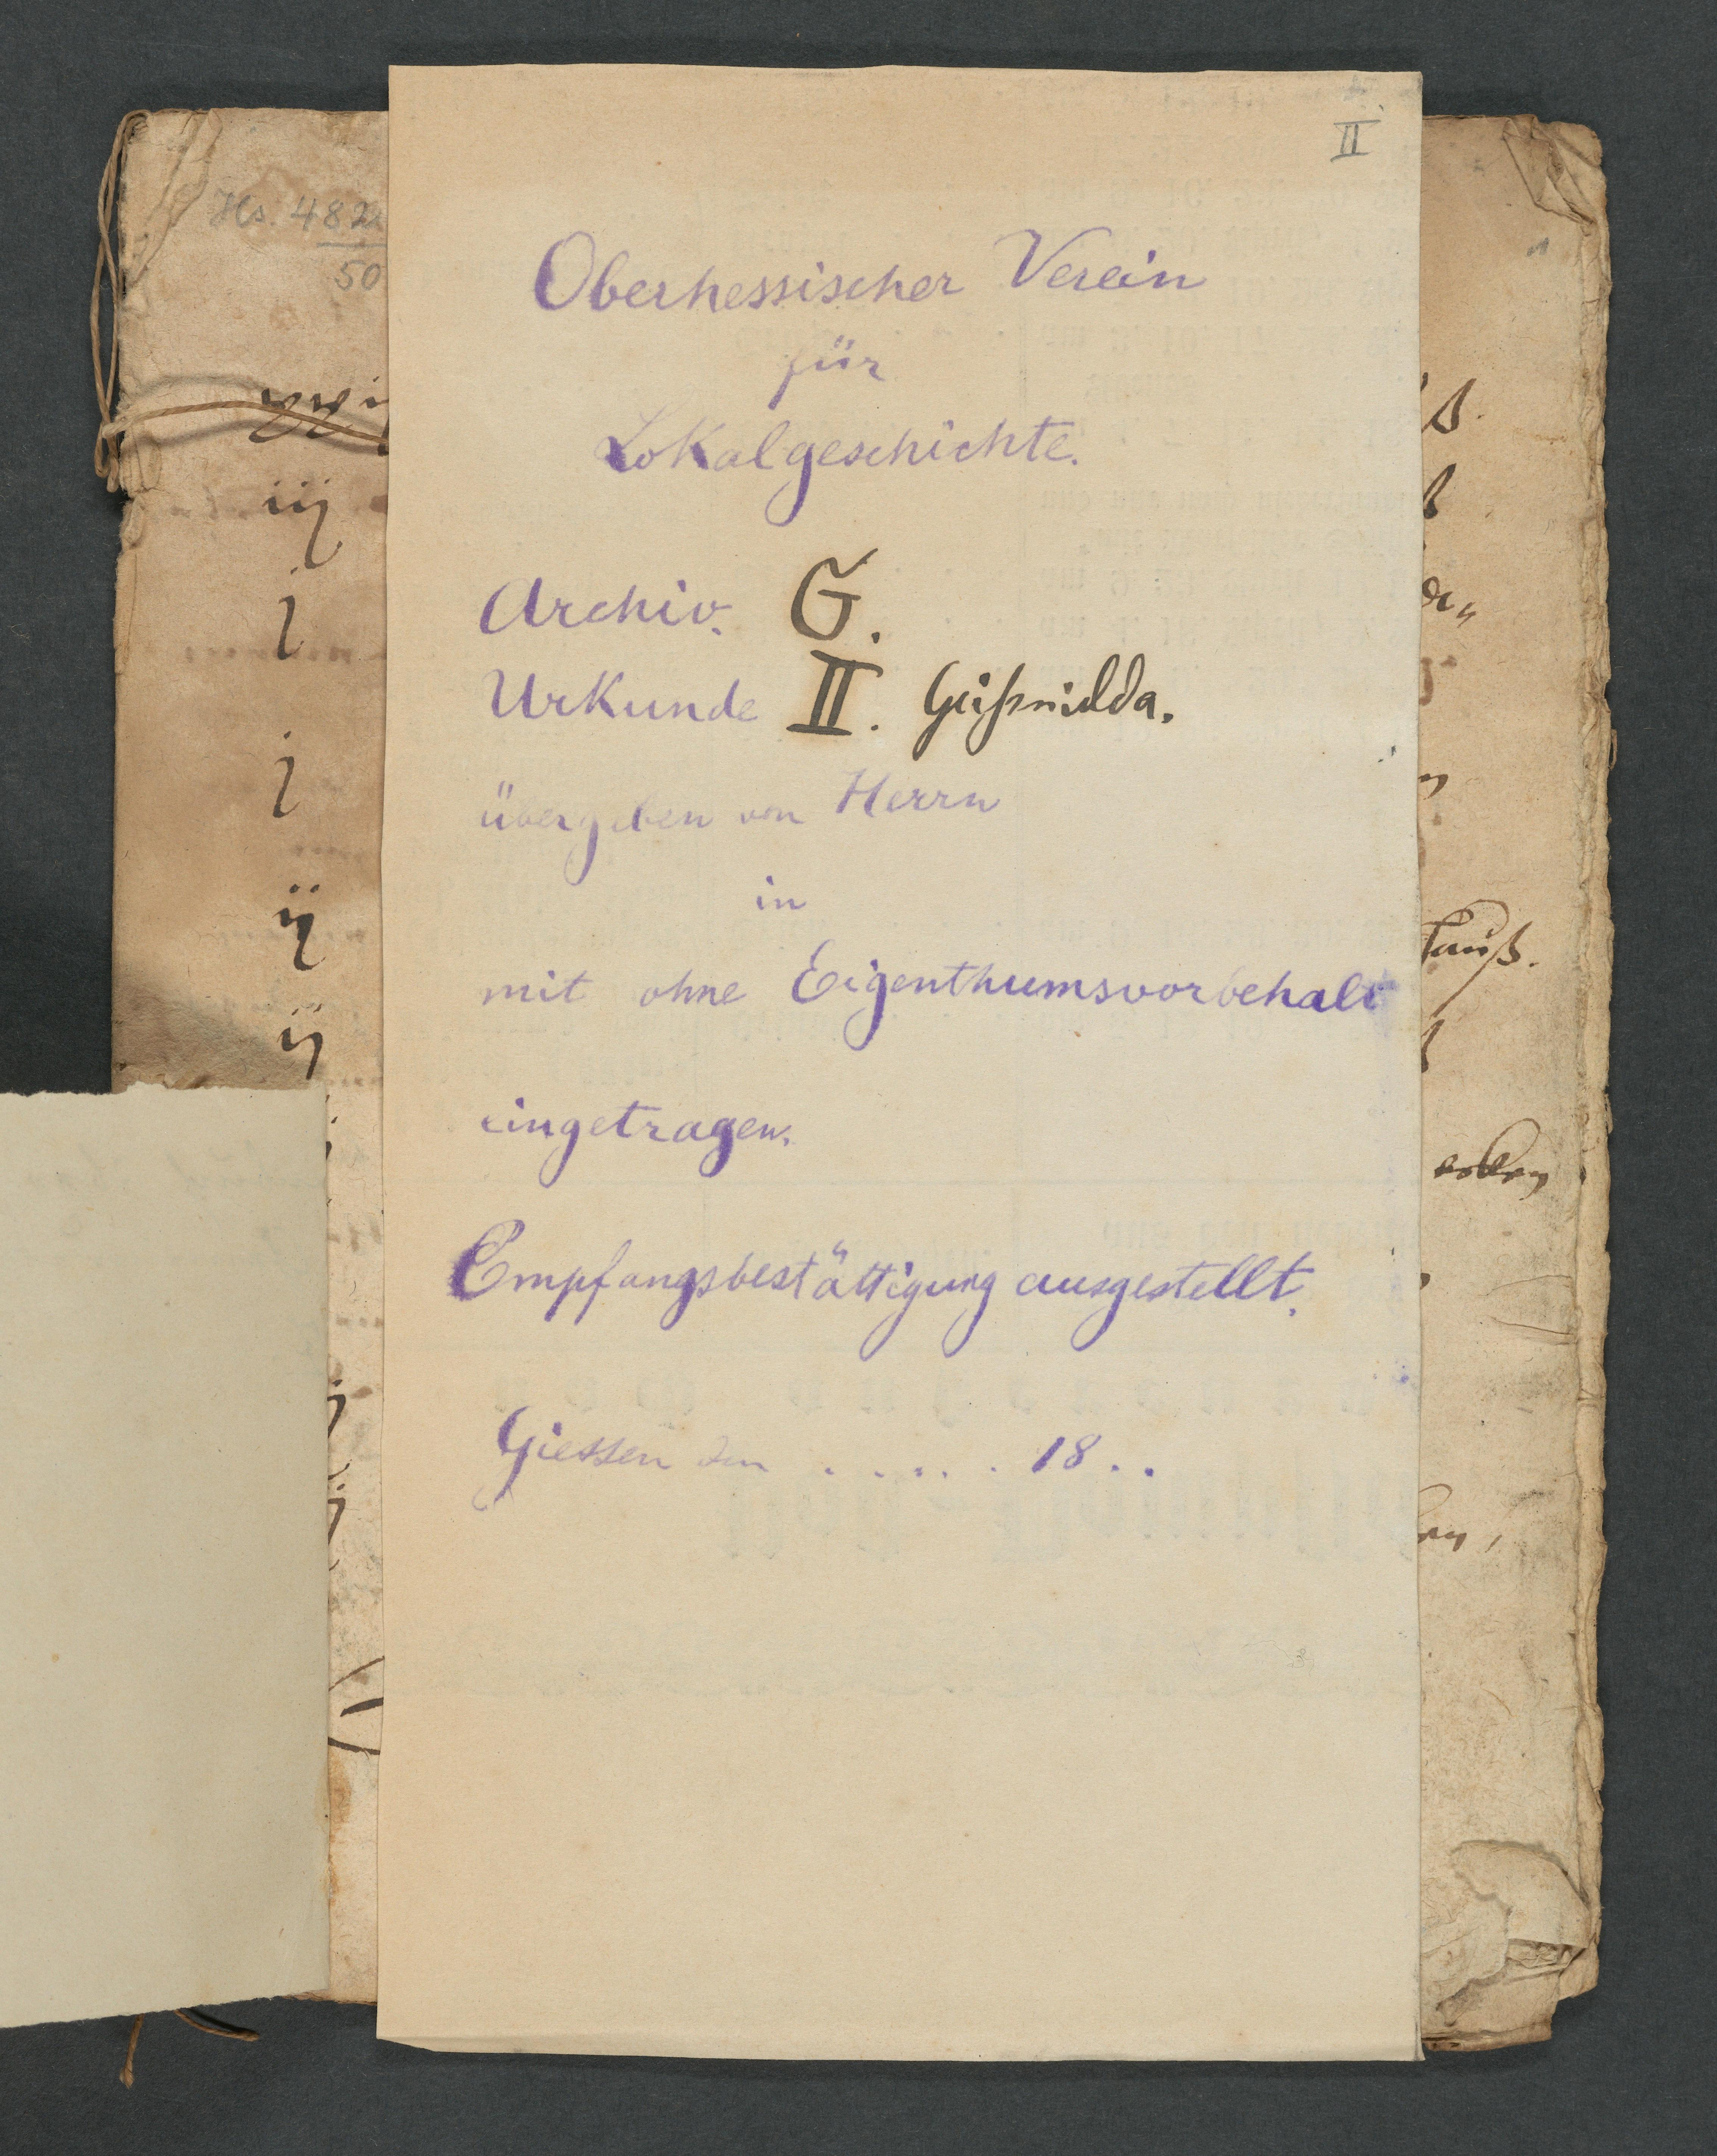 II
Hs. 482
50
Oberhessischer Verein
für
Lokalgeschichte.
Archiv. G.
Urkunde II. Geißnidda.
übergeben von Herrn
in
mit ohne Eigenthumsvorbehalt
eingetragen.
Empfangsbestättigung ausgestellt.
Giessen den . . . . . . 18 . .
iij
j
j
ij
ij